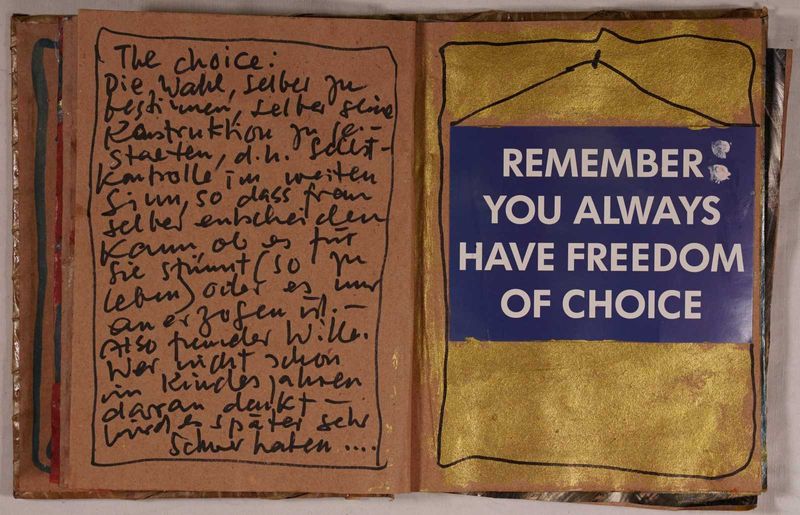 The choice:
Die Wahl, selber zu
bestimmen, selber seine
Konstruktion zu ge-
staeten, d.h. Selbst-
kontrolle im weiten
Sinn, so dass frau
selber entscheiden
kann ob es für
sie stimmt (so zu
leben) oder es nur
anerzogen ist. –
Also fremder Wille.
Wer nicht schon
im Kindesjahren
daran denkt –
wird es später sehr
schwer haten ....
REMEMBER
YOU ALWAYS
HAVE FREEDOM
OF CHOICE